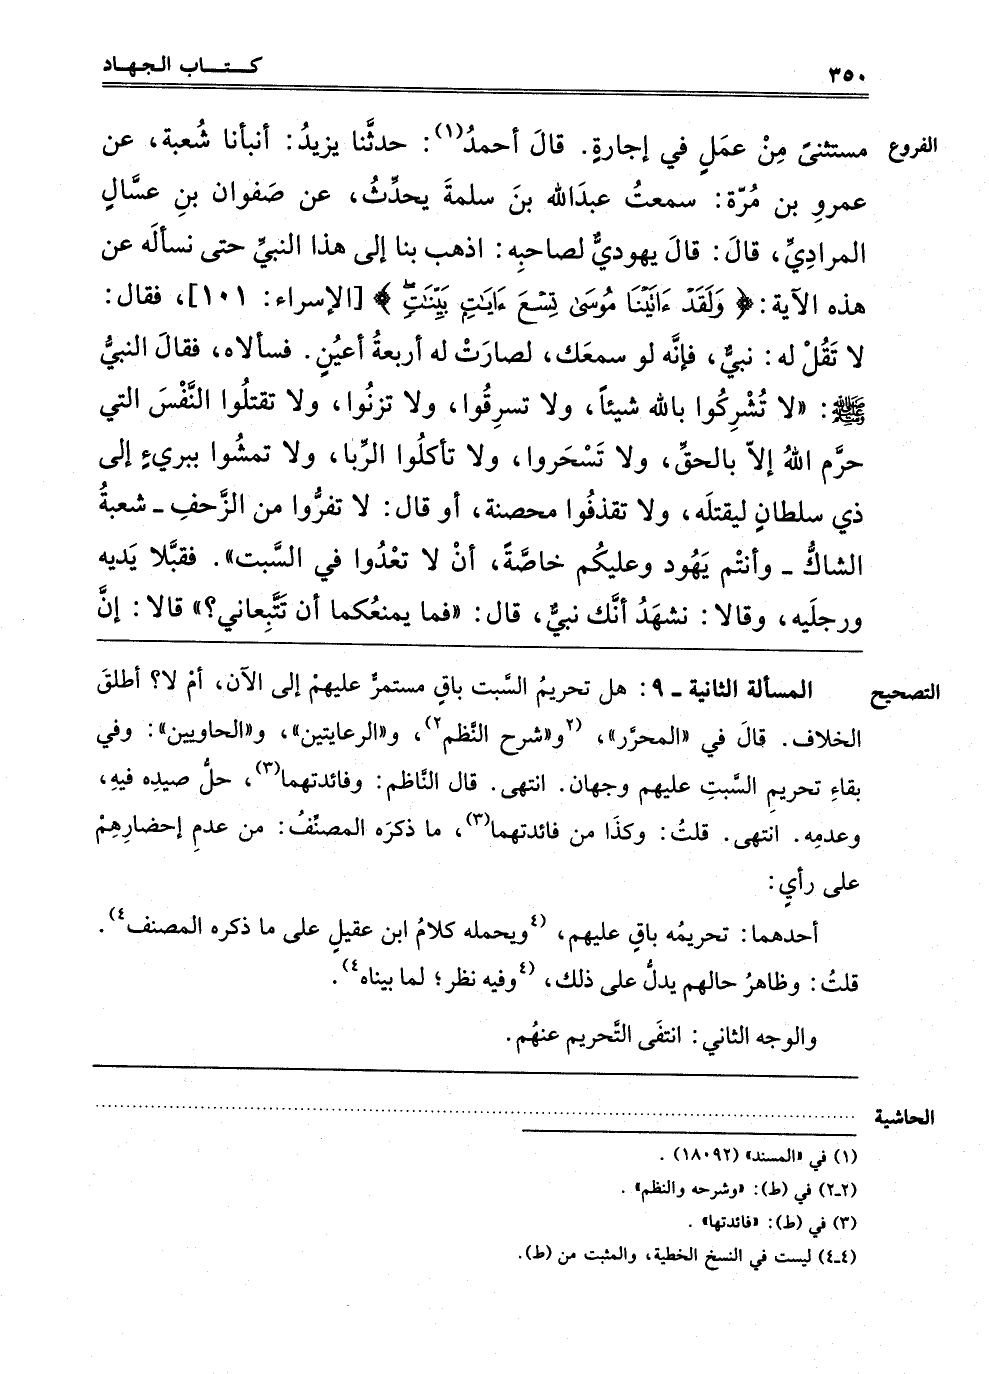 ٣٥٠
كتاب الجهاد
الفروع
مستثنىً مِنْ عمَلٍ في إجارةٍ. قالَ أحمدُ(١): حدثَّنا يزيدُ: أنبأنا شُعبة، عن
عمروِ بن مُرّة: سمعتُ عبدَالله بنَ سلمةَ يحدِّثُ، عن صَفوان بنِ عسَّالٍ
المرادِيِّ، قالَ: قالَ يهوديٌّ لصاحبِه: اذهب بنا إلى هذا النبيِّ حتى نسألَه عن
هذه الآية: ﴿ وَلَقَدْ ءَاتَيْنَا مُوسَىٰ تِسْعَ ءَايَٰتٍ بَيِّنَٰتٍۖ ﴾ [الإسراء: ١٠١]، فقال:
لا تَقُلْ له: نبيٌّ، فإنَّه لو سمعَك، لصارَتْ له أربعةُ أعيُنٍ. فسألاه، فقالَ النبيُّ
ﷺ: «لا تُشْرِكُوا بالله شيئاً، ولا تسرِقُوا، ولا تزنُوا، ولا تقتلُوا النَّفْسَ التي
حرَّم اللهُ إلاّ بالحقِّ، ولا تَسْحَروا، ولا تأكلُوا الرِّبا، ولا تمشُوا ببريءٍ إلى
ذي سلطانٍ ليقتلَه، ولا تقذفُوا محصنة، أو قال: لا تفرُّوا من الزَّحفِ ـ شعبةُ
الشاكُّ ـ وأنتْم يَهُود وعليكُم خاصَّةً، أنْ لا تعْدُوا في السَّبت». فقبَّلا يَديه
ورجلَيه، وقالا: نشهَدُ أنَّك نبيٌّ، قال: «فما يمنعُكما أن تَتَّبِعاني؟» قالا: إنَّ
التصحيح
المسألة الثانية ـ ٩: هل تحريمُ السَّبت باقٍ مستمرٌّ عليهمْ إلى الآن، أمْ لا؟ أطلقَ
الخلاف. قالَ في «المحرَّر»، (٢و«شرح النَّظم٢)، و«الرعايتين»، و«الحاويين»: وفي
بقاءِ تحريمِ السَّبتِ عليهم وجهان. انتهى. قال النَّاظم: وفائدتهما(٣)، حلُّ صيدِه فيهِ،
وعدمِه. انتهى. قلتُ: وكذَا من فائدتهما(٣)، ما ذكرَه المصنِّفُ: من عدمِ إحضارِهِمْ
على رأيٍ:
أحدهما: تحريمُه باقٍ عليهم، (٤ويحمله كلامُ ابن عقيلٍ على ما ذكره المصنف٤).
قلتُ: وظاهرُ حالهم يدلُّ على ذلك، (٤وفيه نظر؛ لما بيناه٤).
والوجه الثاني: انتفَى التَّحريم عنهُم.
الحاشية
(١) في «المسند» (١٨٠٩٢).
(٢-٢) في (ط): «وشرحه والنظم».
(٣) في (ط): «فائدتها».
(٤-٤) ليست في النسخ الخطية، والمثبت من (ط).